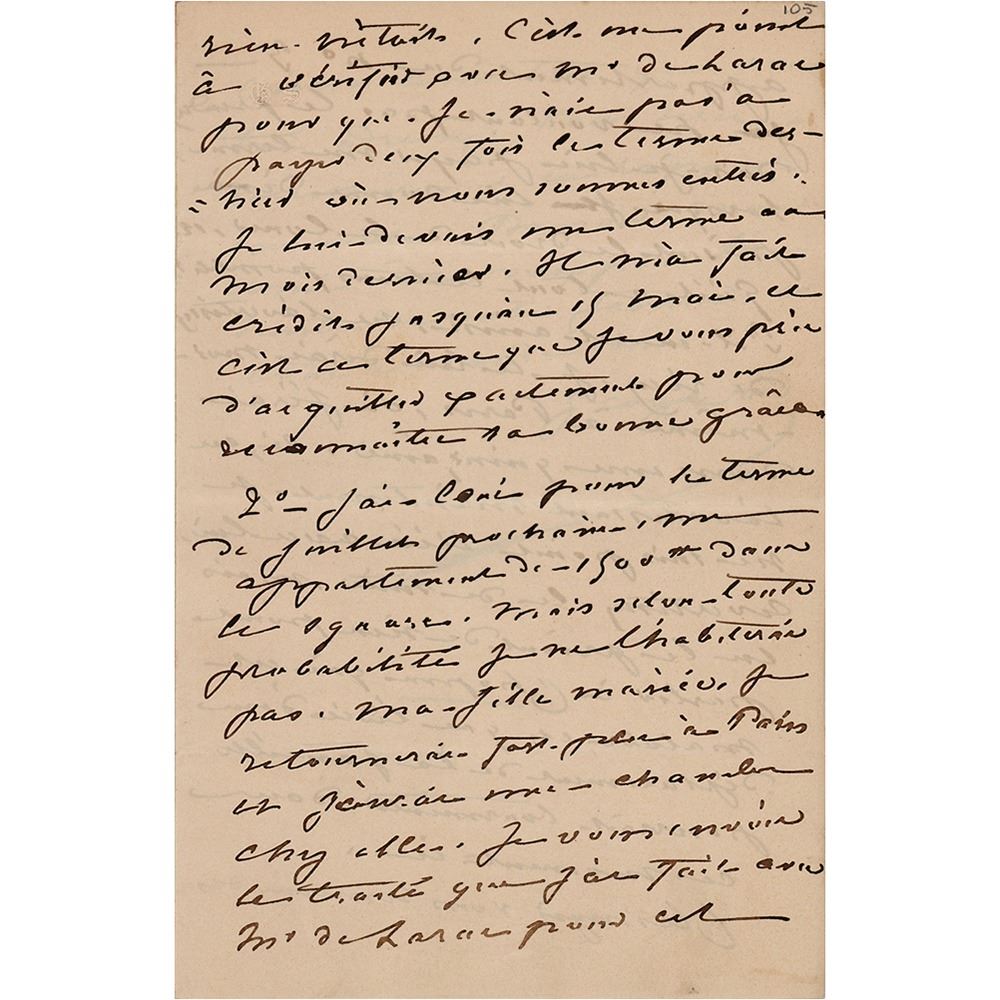 105
rien n'était. C'est un point
à vérifier avec Mr de Larac
pour que je n'aie pas à
payer deux fois le terme der-
=nier où nous sommes entrés.
Je lui devais un terme au
mois dernier. Il m'a fait
crédit jusqu'au 15 mai, et
c'est ce terme que je vous prie
d'acquitter exactement pour
reconnaître sa bonne grâce.
2o J'ai loué pour le terme
de juillet prochain, un
appartement de 1500 dans
le square. Mais selon toute
probabilité je ne l'habiterai
pas. Ma fille mariée, je
retournerai fort peu à Paris
et j'aurai une chambre
chez elle. Je vous envoie
le traité que j'ai fait avec
Mr de Larac pour cet